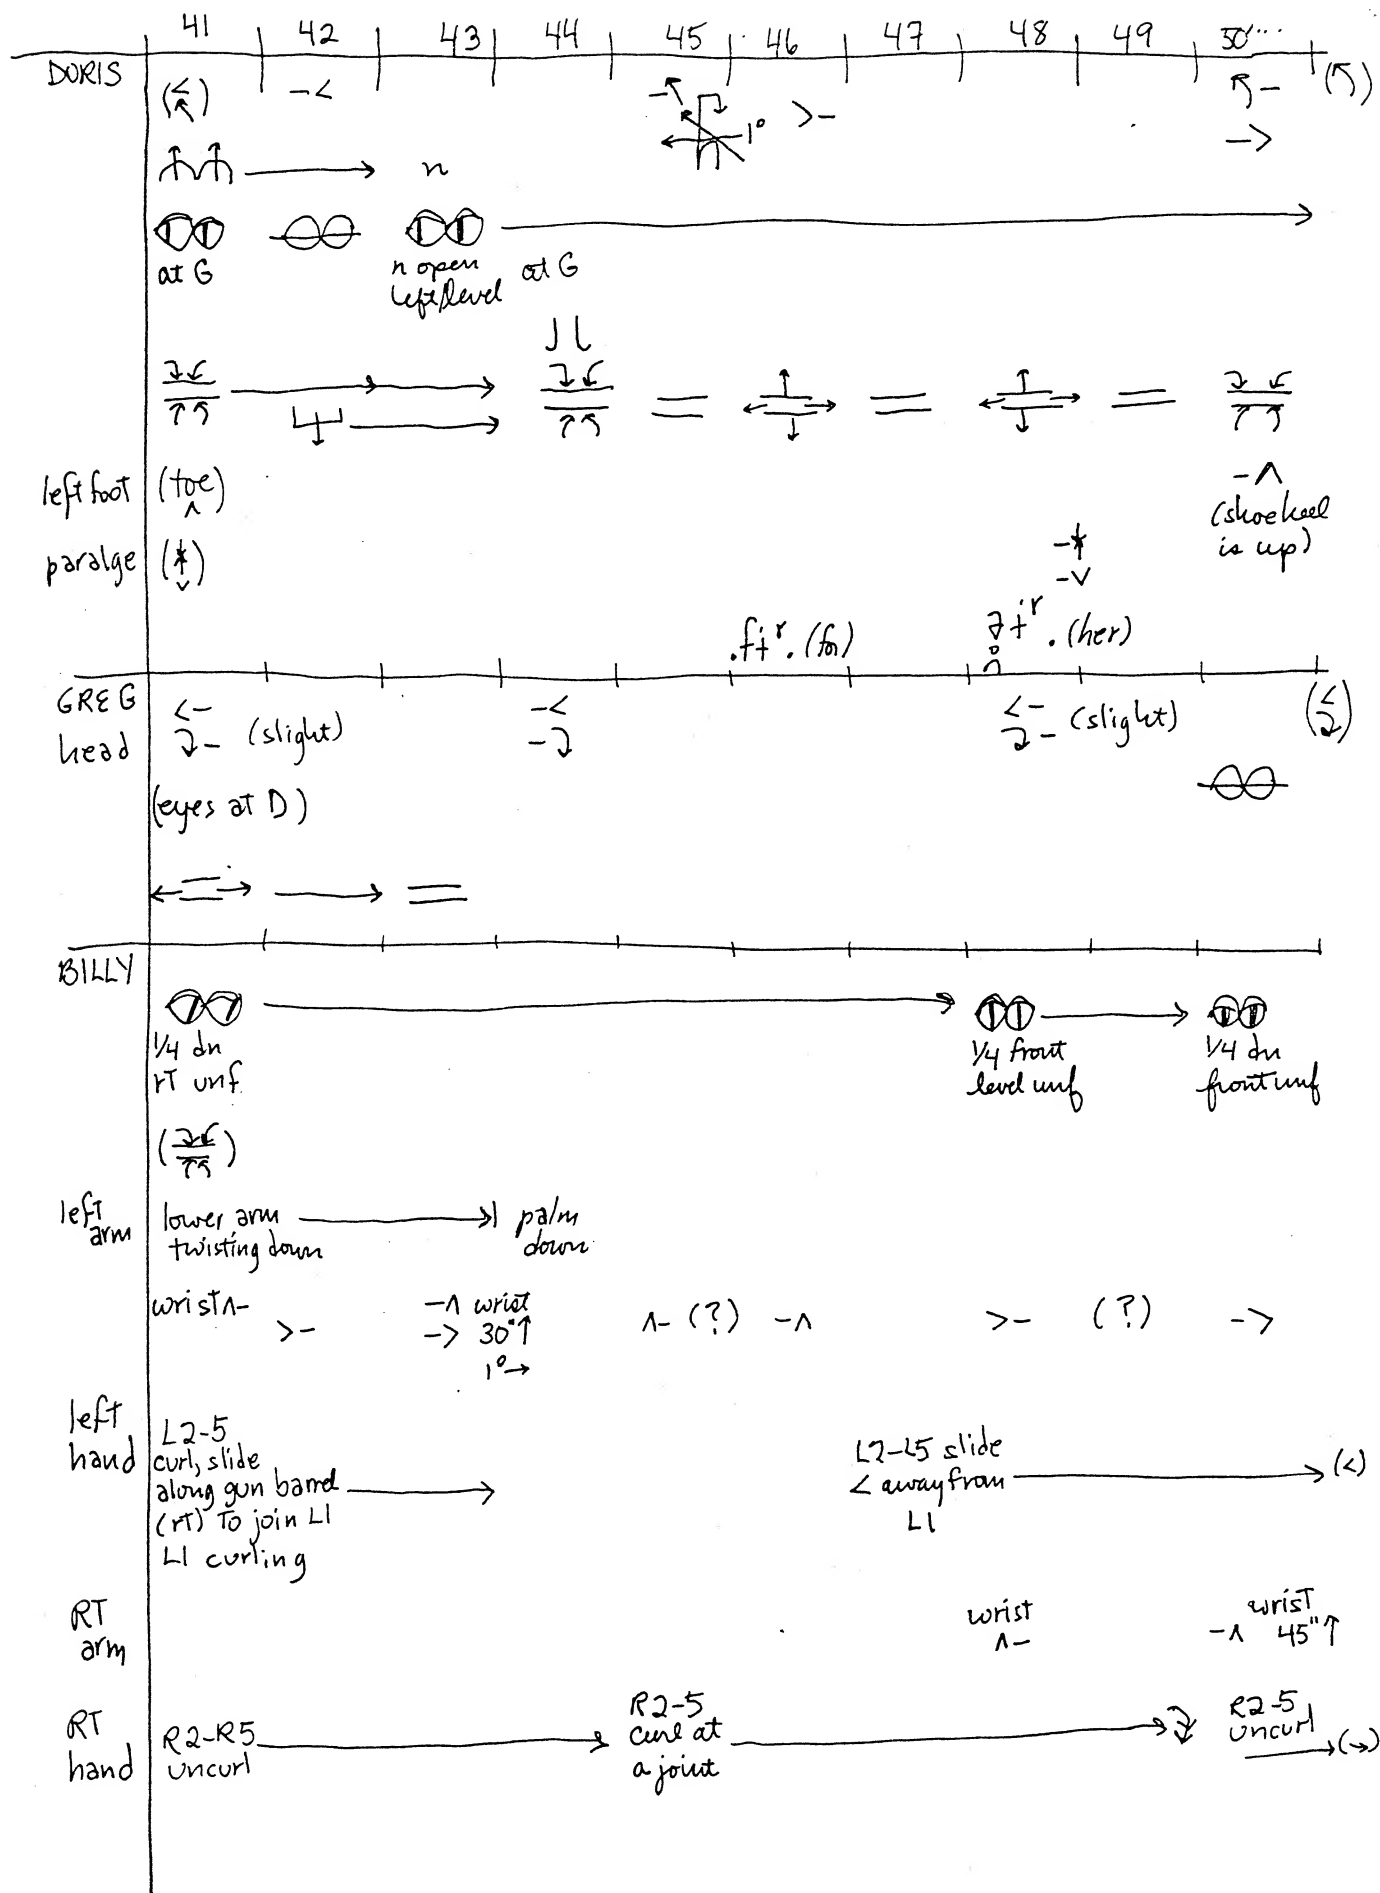 41 42 43 44 45 46 47 48 49 50
DORIS
1°
n
at G
n open
left/level
at G
left foot (toe)
(shoe heel
is up)
paralge
(for)
(her)
GREG
head
(slight)
(slight)
(eyes at D)
BILLY
1/4 dn
rT unf.
1/4 front
level unf
1/4 dn
front unf
left
arm
lower arm
twisting down
palm
down
wrist ʌ-
>-
-ʌ wrist
-> 30"↑
1°→
ʌ- (?) -ʌ
>- (?) ->
left
hand
L2-5
curl, slide
along gun barrel
(rt) To join L1
L1 curling
L2-L5 slide
< away from
L1
(<)
RT
arm
wrist
ʌ-
wrist
-ʌ 45"↑
RT
hand
R2-R5
uncurl
R2-5
curl at
a joint
R2-5
uncurl